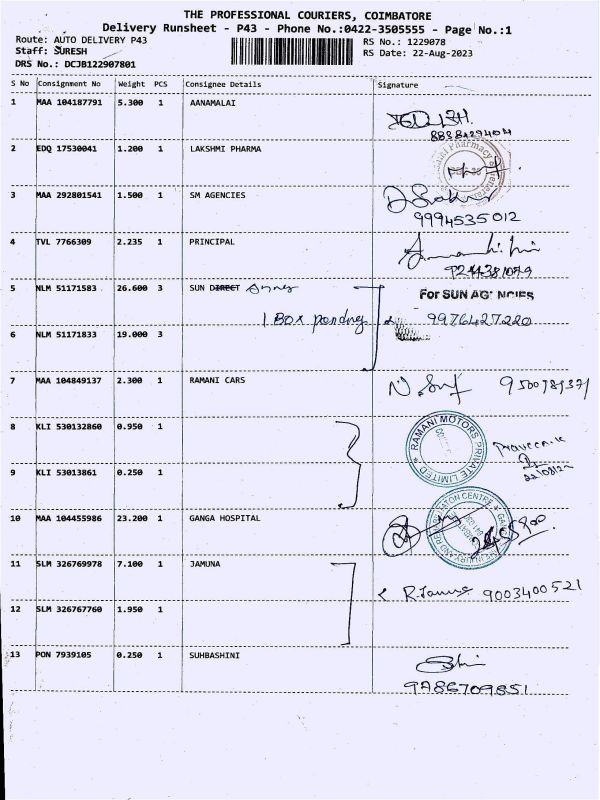 THE PROFESSIONAL COURIERS, COIMBATORE
Delivery Runsheet - P43 - Phone No.:0422-3505555 - Page No.:1
Route: AUTO DELIVERY P43 RS No.: 1229078
Staff: SURESH RS Date: 22-Aug-2023
DRS No.: DCJB122907801
S No Consignment No Weight PCS Consignee Details Signature
1 MAA 104187791 5.300 1 AANAMALAI
2 EDQ 17530041 1.200 1 LAKSHMI PHARMA
Pharmacy
3 MAA 292801541 1.500 1 SM AGENCIES
9994535012
4 TVL 7766309 2.235 1 PRINCIPAL
5 NLM 51171583 26.600 3 SUN DIRECT For SUN AGENCIES
1 Box pending 9976427220
6 NLM 51171833 19.000 3
7 MAA 104849137 2.300 1 RAMANI CARS
8 KLI 530132860 0.950 1
RAMANI MOTORS PRIVATE LIMITED
Praveen.k
9 KLI 53013861 0.250 1
10 MAA 104455986 23.200 1 GANGA HOSPITAL
11 SLM 326769978 7.100 1 JAMUNA
9003400521
12 SLM 326767760 1.950 1
13 PON 7939105 0.250 1 SUHBASHINI
9786709851